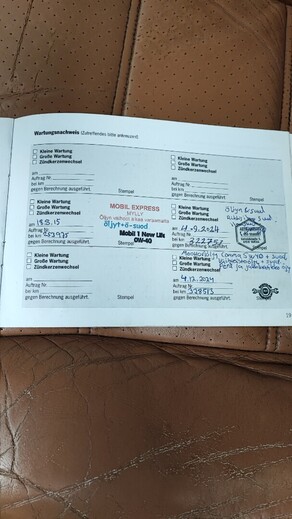 Wartungsnachweis (Zutreffendes bitte ankreuzen)
Kleine Wartung
Große Wartung
Zündkerzenwechsel
am
Auftrag Nr.
bei km
gegen Berechnung ausgeführt.
Stempel
Kleine Wartung
Große Wartung
Zündkerzenwechsel
am
Auftrag Nr.
bei km
gegen Berechnung ausgeführt.
Stempel
Kleine Wartung
Große Wartung
Zündkerzenwechsel
am 19.8.15
Auftrag Nr.
bei km
gegen Berechnung ausgeführt.
MOBIL EXPRESS
MYLLY
Öljyn vaihdot ilman varausta
öljyt+ö-suod
Mobil 1 New Life
0W-40
Stempel
Kleine Wartung
Große Wartung
Zündkerzenwechsel
am 4.9.2024
Auftrag Nr.
bei km 322752
gegen Berechnung ausgeführt.
Öljyn & suod
Kleine Wartung
Große Wartung
Zündkerzenwechsel
am
Auftrag Nr.
bei km
gegen Berechnung ausgeführt.
Stempel
Kleine Wartung
Große Wartung
Zündkerzenwechsel
am 4.12.2024
Auftrag Nr.
bei km 328513
gegen Berechnung ausgeführt.